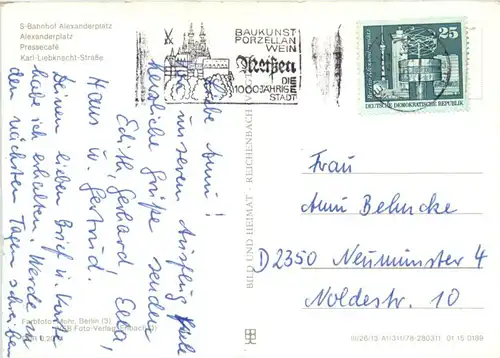 S-Bahnhof Alexanderplatz
Alexanderplatz
Pressecafé
Karl-Liebknecht-Straße
BAUKUNST
PORZELLAN
WEIN
Meißen
DIE
1000JÄHRIGE
STADT
25
DEUTSCHE DEMOKRATISCHE REPUBLIK
Liebe Anni!
unserem Ausflug
herzliche Grüße senden
Edith, Gerhard, Ella,
Hans u. Gertrud.
Deinen lieben Brief u. Karte
habe ich erhalten. Werde in
den nächsten Tagen schreiben
BILD UND HEIMAT · REICHENBACH
Frau
Anni Behncke
D2350 Neumünster 4
Noldestr. 10
Farbfoto: Mohr, Berlin (3)
III/26/13 A1/311/78-280311 01 15 0189